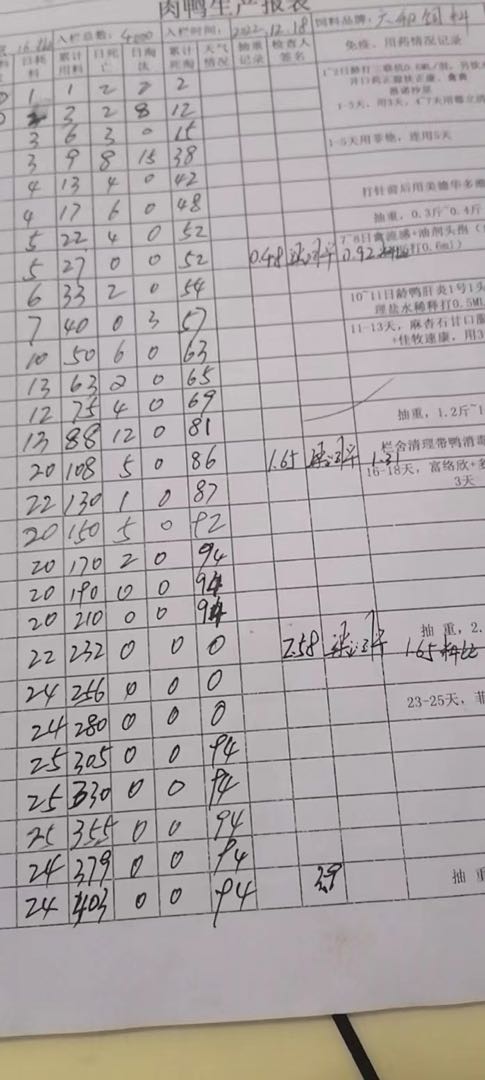 肉鸭生产报表
入栏总数: 4000 入栏时间: 2022.12.18 饲料品牌:
日耗料 累计用料 日死亡 日淘汰 累计死淘 天气情况 抽重记录 检查人签名 免疫、用药情况记录
1 1 2 2
3 2 8 12
1-5天, 用3天, 4~7天用
3 6 3 0 15 1-5天用 连用5天
3 9 8 15 38
4 13 4 0 42 打针前后用美德华多
4 17 6 0 48 抽重, 0.3斤~0.4斤
5 22 4 0 52 7~8日禽流感+油剂头孢
5 27 0 0 52 0.48 0.92 打0.6ml)
6 33 2 0 54 10~11日龄鸭肝炎1号1头
理盐水稀释打0.5ML
7 40 0 3 57 11-13天, 麻杏石甘口服
10 50 6 0 63 +佳牧速康, 用3
13 63 2 0 65
12 75 4 0 69 抽重, 1.2斤~1
13 88 12 0 81 栏舍清理带鸭消毒
20 108 5 0 86 1.65 1.31
16-18天, 富络欣+
22 130 1 0 87 3天
20 150 5 0 92
20 170 2 0 94
20 190 0 0 94
20 210 0 0 94 抽重, 2.
22 232 0 0 0 2.58 1.65 料比
24 256 0 0 0
24 280 0 0 0 23-25天, 菲
25 305 0 0 94
25 330 0 0 94
25 355 0 0 94
24 379 0 0 94
24 403 0 0 94 3.9 抽重